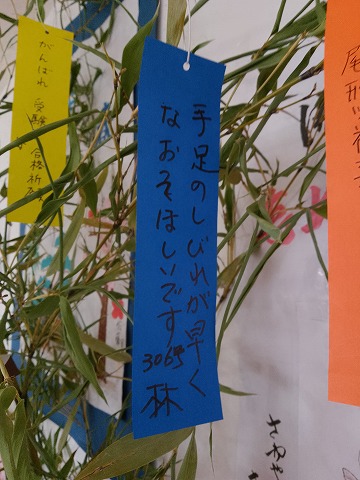 手足のしびれが早く
なおそほしいです
306号
林
がんばれ 受験 合格祈
さわや